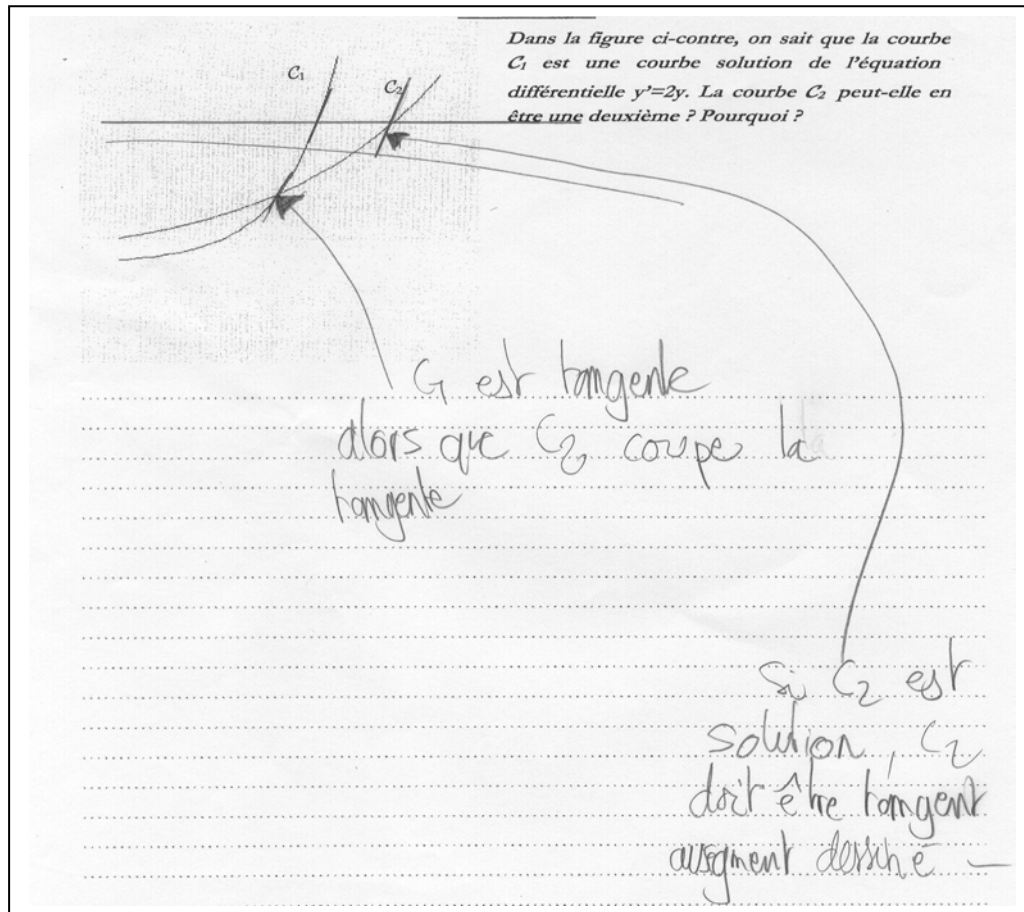 Dans la figure ci-contre, on sait que la courbe
C₁ est une courbe solution de l'équation
différentielle y'=2y. La courbe C₂ peut-elle en
être une deuxième ? Pourquoi ?
C₁
C₂
C₁ est tangente
alors que C₂ coupe la
tangente
Si C₂ est
solution, C₂
doit être tangent
au segment dessiné